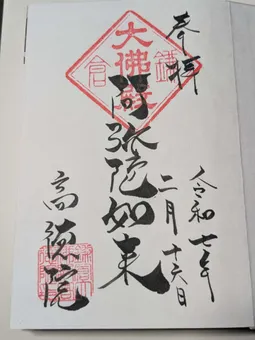 奉拝
令和七年
二月十六日
鎌倉
大佛殿
阿弥陀如来
高徳院